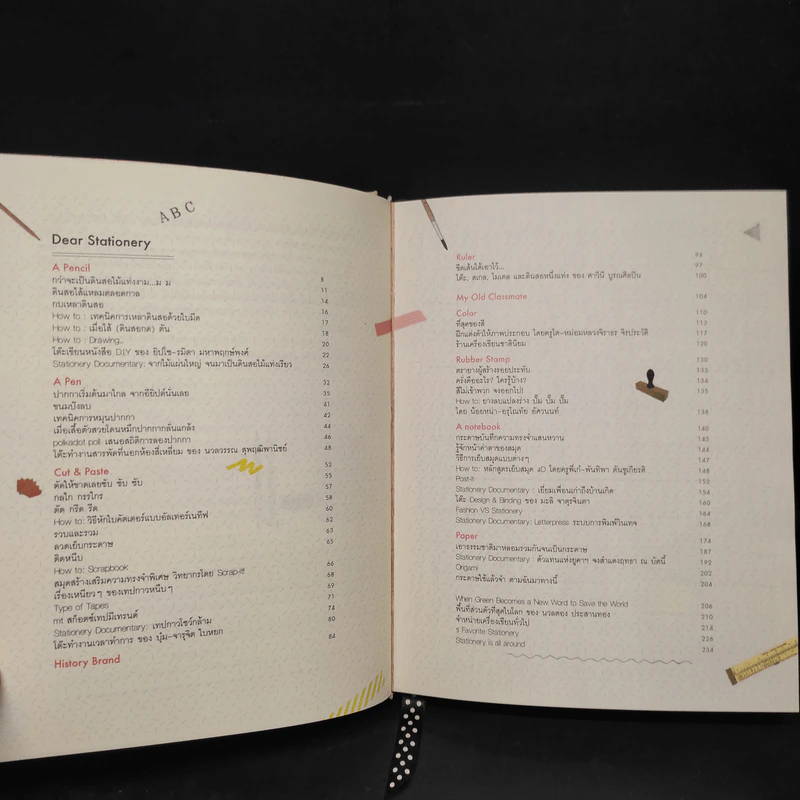 ABC
Dear Stationery
A Pencil
กว่าจะเป็นดินสอไม้แท่งงาม...ม ม 8
ดินสอไส้แหลมตลอดกาล 11
กบเหลาดินสอ 14
How to : เทคนิคการเหลาดินสอด้วยใบมีด 16
How to : เมื่อไส้ (ดินสอกด) ตัน 17
How to : Drawing.. 18
โต๊ะเขียนหนังสือ D.I.Y ของ ยิปโซ-รมิตา มหาพฤกษ์พงศ์ 20
Stationery Documentary: จากไม้แผ่นใหญ่ จนมาเป็นดินสอไม้แท่งเรียว 22
26
A Pen 32
ปากกาเริ่มต้นมาไกล จากอียิปต์นั่นเลย 35
ขนมปังลบ 41
เทคนิคการหมุนปากกา 42
เมื่อเสื้อตัวสวยโดนหมึกปากกากลั่นแกล้ง 44
polkadot poll เสนอสถิติการลองปากกา 46
โต๊ะทำงานสารพัดที่นอกห้องสี่เหลี่ยม ของ นวลวรรณ สุพฤฒิพานิชย์ 48
Cut & Paste 52
ตัดให้ขาดเลยซับ ซับ ซับ 55
กลไก กรรไกร 57
ตัด กรีด รีด 58
How to: วิธีหักใบคัตเตอร์แบบอัลเทอร์เนทีฟ 60
รวบและรวม 62
ลวดเย็บกระดาษ 63
ติดหนึบ 65
How to: Scrapbook
สมุดสร้างเสริมความทรงจำพิเศษ วิทยากรโดย Scrap-it! 66
เรื่องเหนียวๆ ของเทปกาวหนึบๆ 68
Type of Tapes 69
mt สก็อตซ์เทปมีเทรนด์ 71
Stationery Documentary: เทปกาวโชว์กล้าม 74
โต๊ะทำงานเวลาทำการ ของ ปุ๋ม-จารุจิต ใบหยก 80
History Brand 84
Ruler 94
ขีดเส้นใต้เอาไว้... 97
โต๊ะ, สเกล, โมเดล และดินสอหนึ่งแท่ง ของ ศาวินี บูรณศิลปิน 100
My Old Classmate 104
Color 110
ที่สุดของสี 113
ฝึกแต่งตัวให้ภาพประกอบ โดยครูโต-หม่อมหลวงจิราธร จิรประวัติ 117
ร้านเครื่องเขียนชาตินิยม 120
Rubber Stamp 130
ตรายางผู้สร้างรอยประทับ 133
ครั่งคืออะไร? ใครรู้บ้าง? 134
สีไม่เข้าพวก จงออกไป! 135
How to: ยางลบแปลงร่าง ปั๊ม ปั๊ม ปั๊ม
โดย น้อยหน่า-อรุโณทัย อัศวนนท์ 138
A notebook 140
กระดาษบันทึกความทรงจำแสนหวาน 143
รู้จักหน้าค่าตาของสมุด 144
วิธีการเย็บสมุดแบบต่างๆ 147
How to: หลักสูตรเย็บสมุด 4D โดยครูพี่เก๋-พันทิพา ตันชูเกียรติ 148
Post-it 152
Stationery Documentary : เยี่ยมเพื่อนเก่าถึงบ้านเกิด 154
โต๊ะ Design & Binding ของ มะลิ จาตุรจินดา 160
Fashion VS Stationery 164
Stationery Documentary: Letterpress ระบบการพิมพ์วินเทจ 168
Paper 174
เอาธรรมชาติมาหลอมรวมกันจนเป็นกระดาษ 187
Stationery Documentary : ตัวแทนแห่งยูคาฯ จงสำแดงฤทธา ณ บัดนี้ 192
Origami 202
กระดาษใช้แล้วจ๋า ตามฉันมาทางนี้ 204
When Green Becomes a New Word to Save the World 206
พื้นที่ส่วนตัวที่สุดในโลก ของ นวลตอง ประสานทอง 210
จำหน่ายเครื่องเขียนทั่วไป 214
5 Favorite Stationery 226
Stationery is all around 234